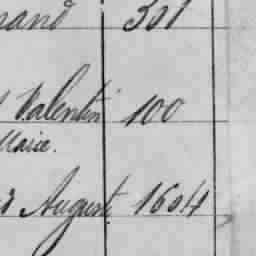 301
Valentin 100
Marie.
August 1604